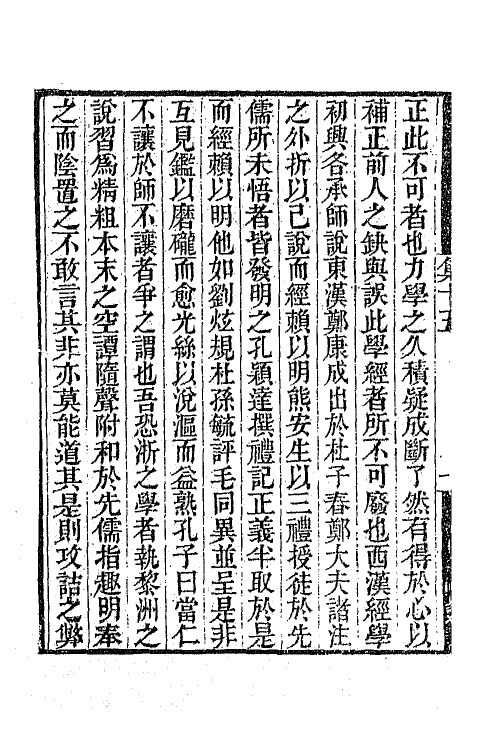 正此不可者也力學之久積疑成斷了然有得於心以
補正前人之缺與誤此學經者所不可廢也西漢經學
初興各承師說東漢鄭康成出於杜子春鄭大夫諸注
之外折以己說而經賴以明熊安生以三禮授徒於先
儒所未悟者皆發明之孔穎達撰禮記正義半取於是
而經賴以明他如劉炫規杜孫毓評毛同異並呈是非
互見鑑以磨礲而愈光絲以涚漚而益熟孔子曰當仁
不讓於師不讓者爭之謂也吾恐浙之學者執黎洲之
說習爲精粗本末之空譚隨聲附和於先儒指趣明奉
之而陰置之不敢言其非亦莫能道其是則攻詰之弊
集十五